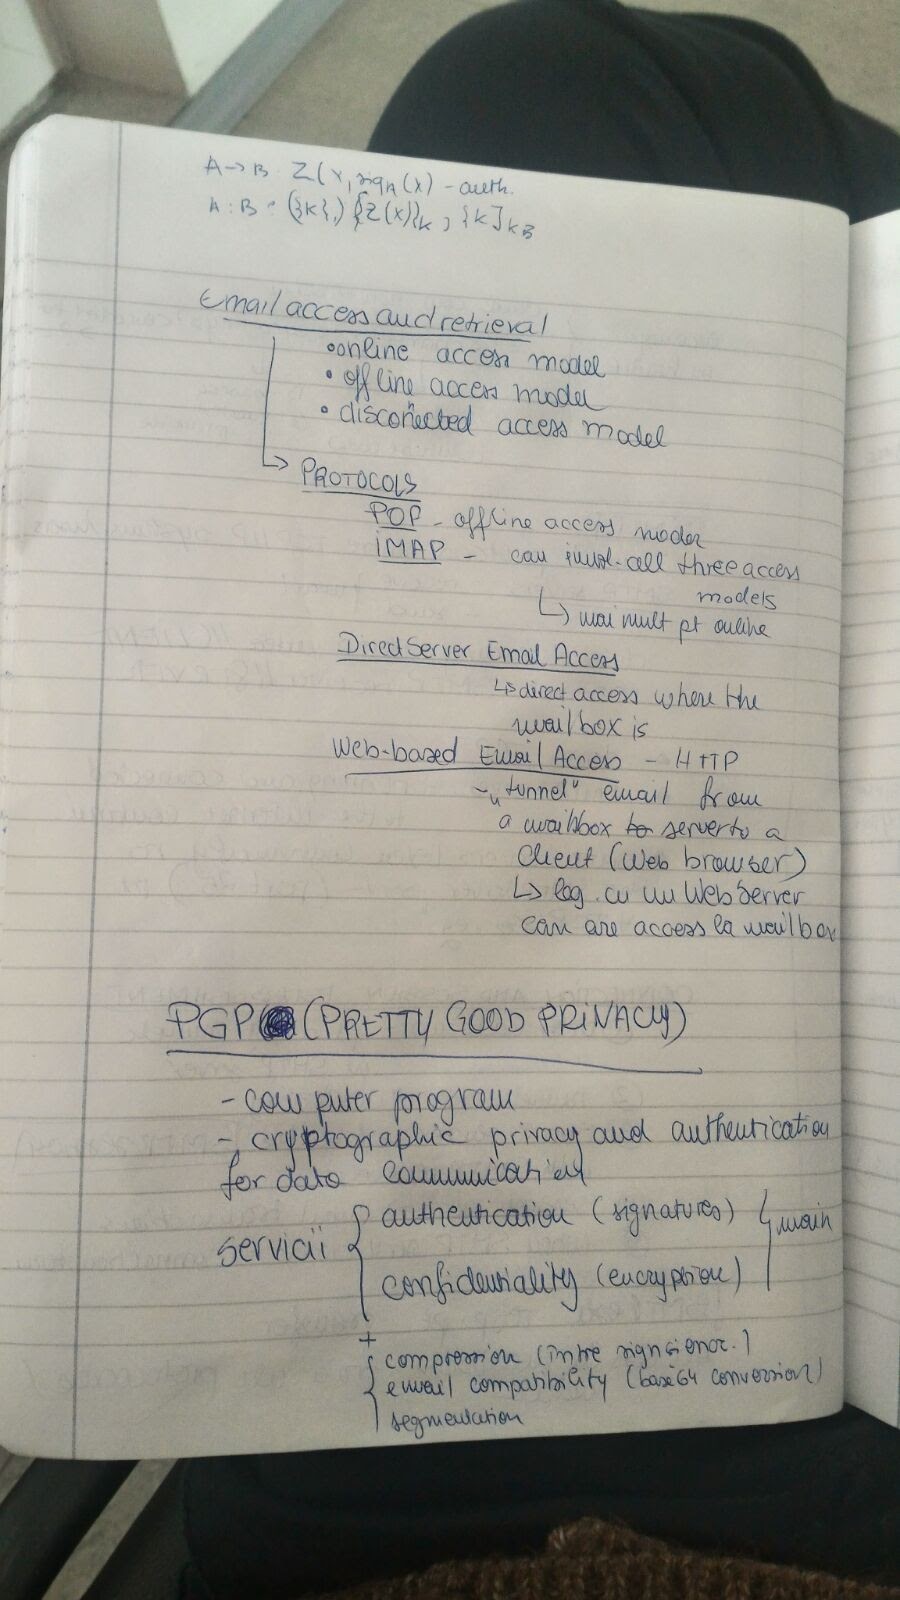 A → B : Z(x, sigA(x) - auth.
A : B : ({k},) {Z(x)}k, {k}kB
Email access and retrieval
• online access model
• offline access model
• disconnected access model
↳ PROTOCOLS
POP - offline access model
IMAP - can impl. all three access
models
↳ mai mult pt online
Direct Server Email Access
↳ direct access where the
mailbox is
Web-based Email Access - HTTP
- „tunnel" email from
a mailbox to server to a
client (Web browser)
↳ log. cu un WebServer
care are access la mailbox
PGP (PRETTY GOOD PRIVACY)
- computer program
- cryptographic privacy and authentication
for data communication
servicii { authentication (signatures) } main
confidentiality (encryption)
+
{ compression (intre sign si enc.)
email compatibility (base64 conversion)
segmentation